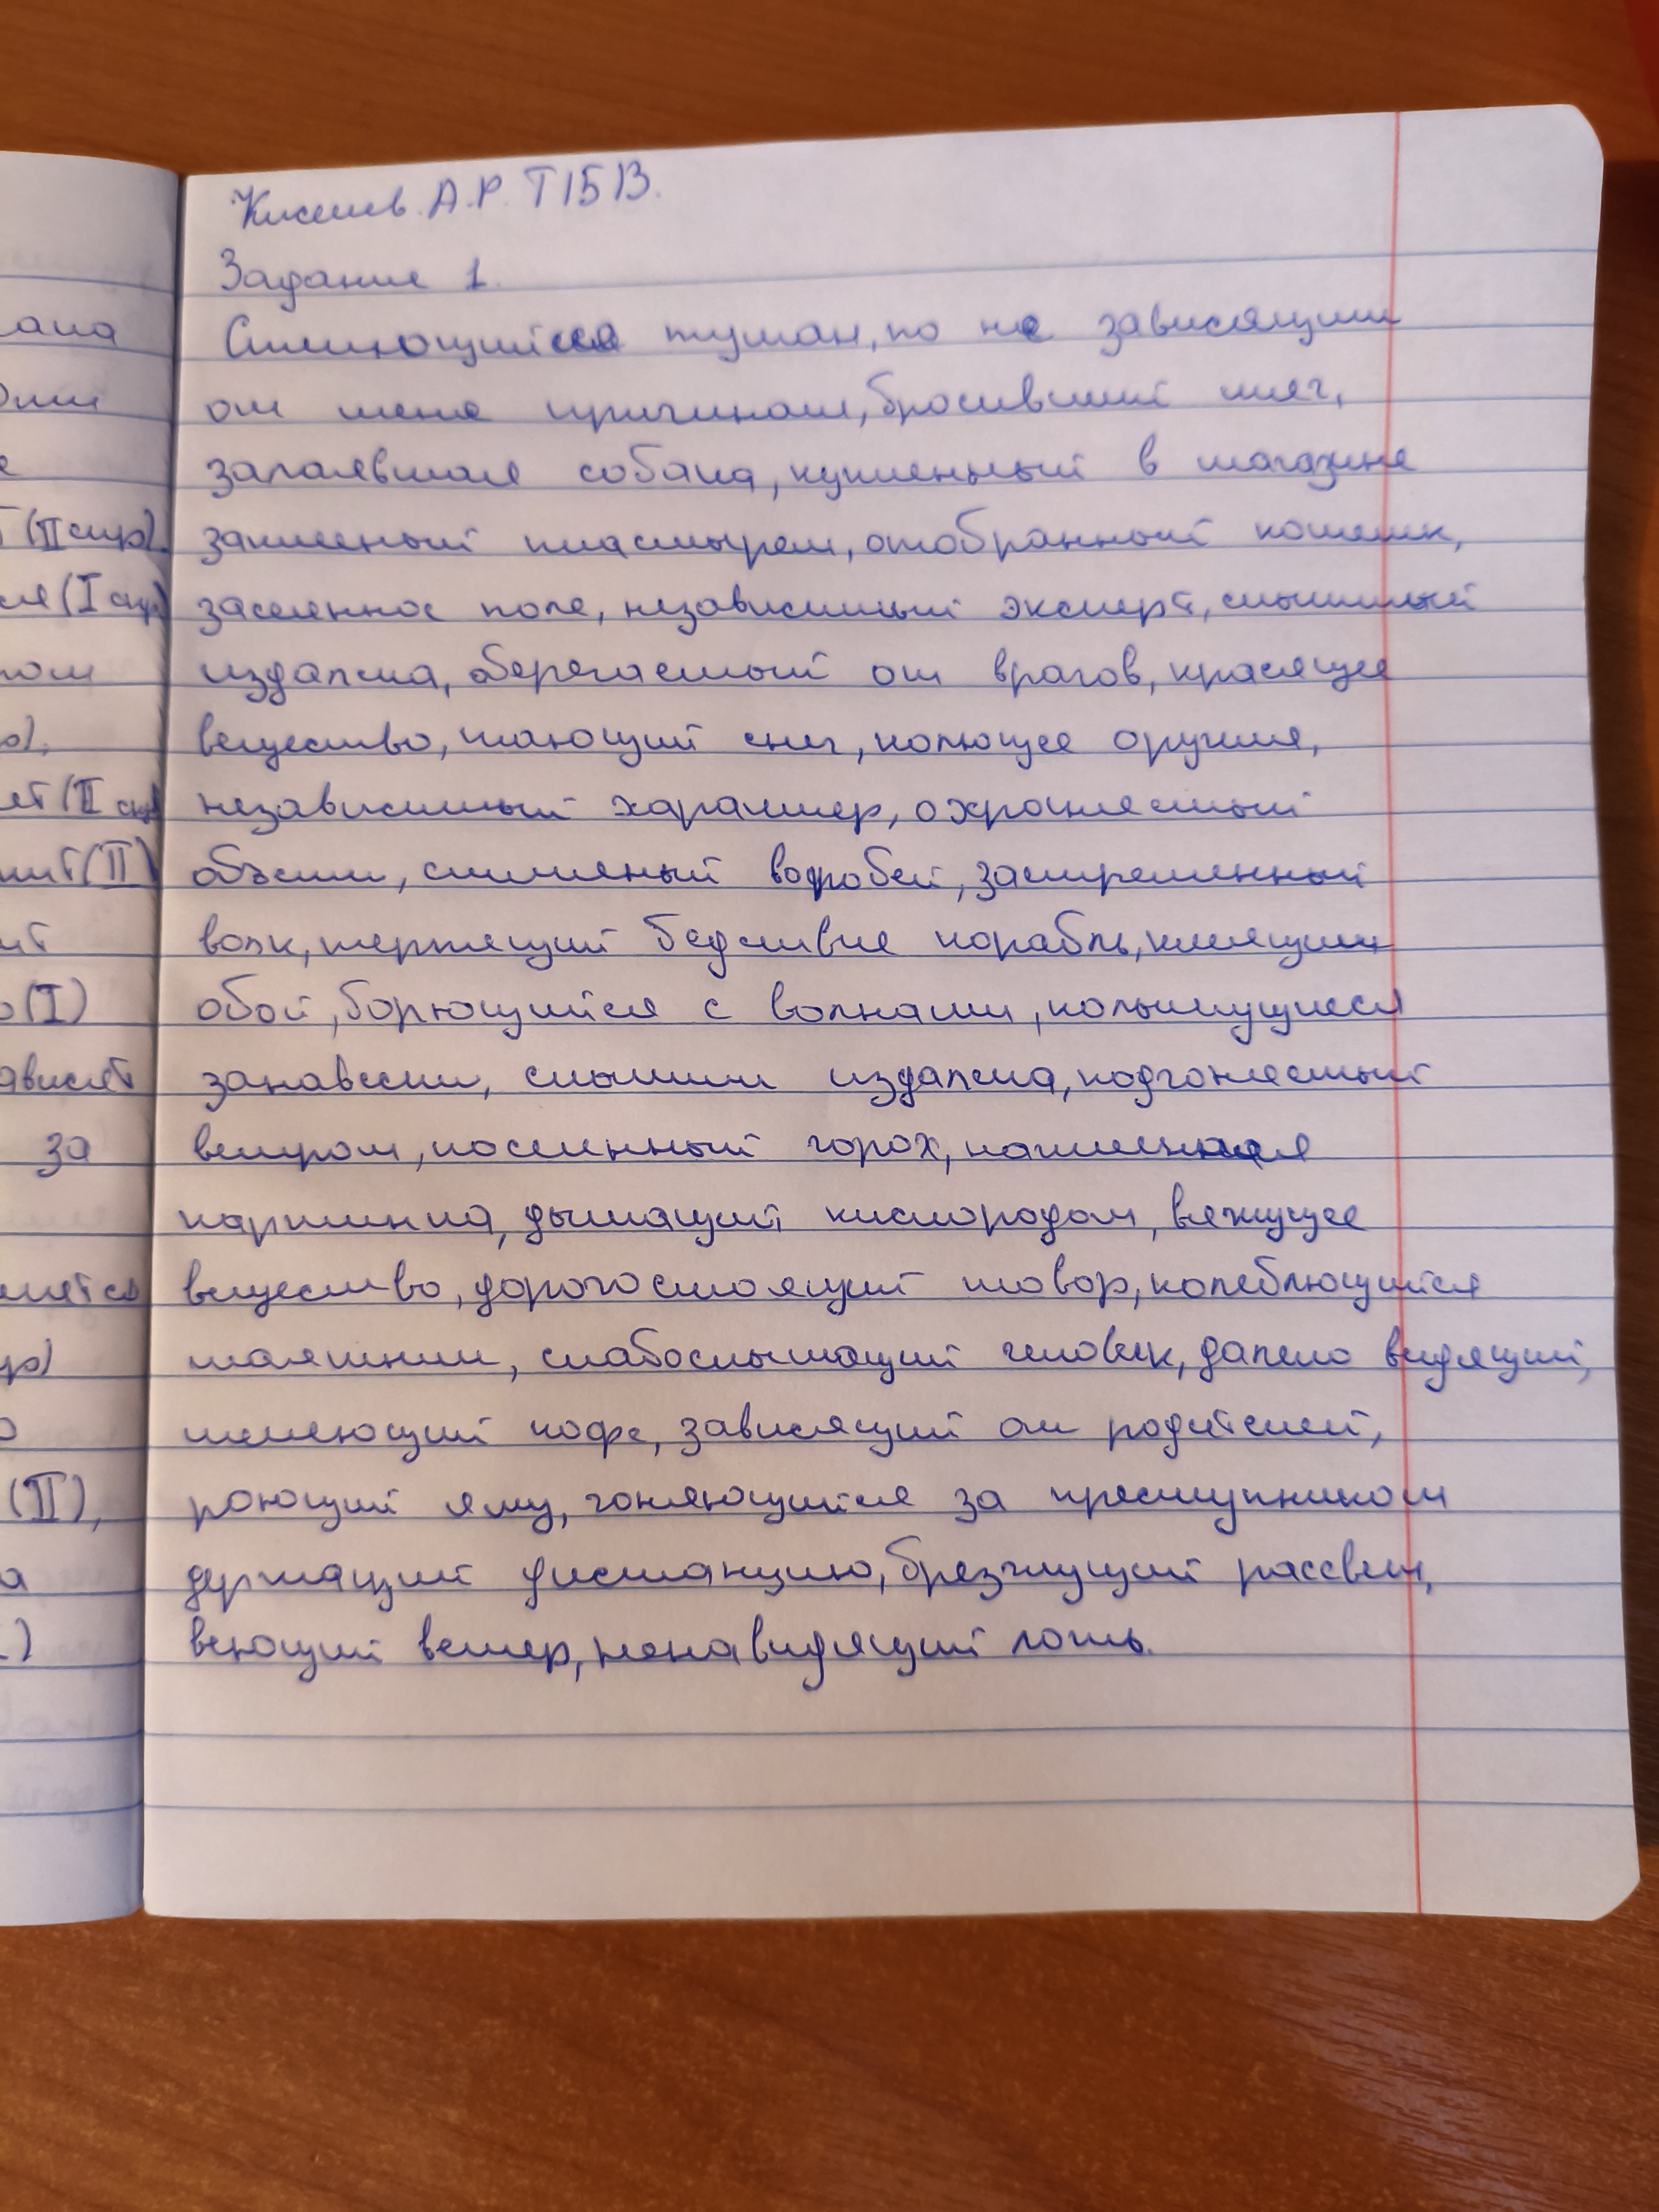 А.Р. Т15В.
Задание 1.
туман, по не зависящим
от меня причинам, бросивший мяч,
залаявшая собака, купленный в магазине
заклееный пластырем, отобранный кошелёк,
засеянное поле, независимый эксперт, слышимый
издалека, оберегаемый от врагов, красящее
вещество, тающий снег, колющее оружие,
независимый характер, охраняемый
объект, воробей, застреленный
волк, терпящий бедствие корабль, клеящий
обои, борющийся с волнами, колышущиеся
занавески, слышим издалека, подгоняемый
ветром, посеянный горох, наклеенная
картинка, дышащий кислородом, вяжущее
вещество, дорогостоящий товар, колеблющийся
маятник, слабослышащий человек, далеко видящий,
мелющий кофе, зависящий от родителей,
роющий яму, гоняющийся за преступником
держащий дистанцию, брезжущий рассвет,
веющий ветер, ненавидящий ложь.
ана
(II спр).
(I спр)
(II)
(I)
за
(II),